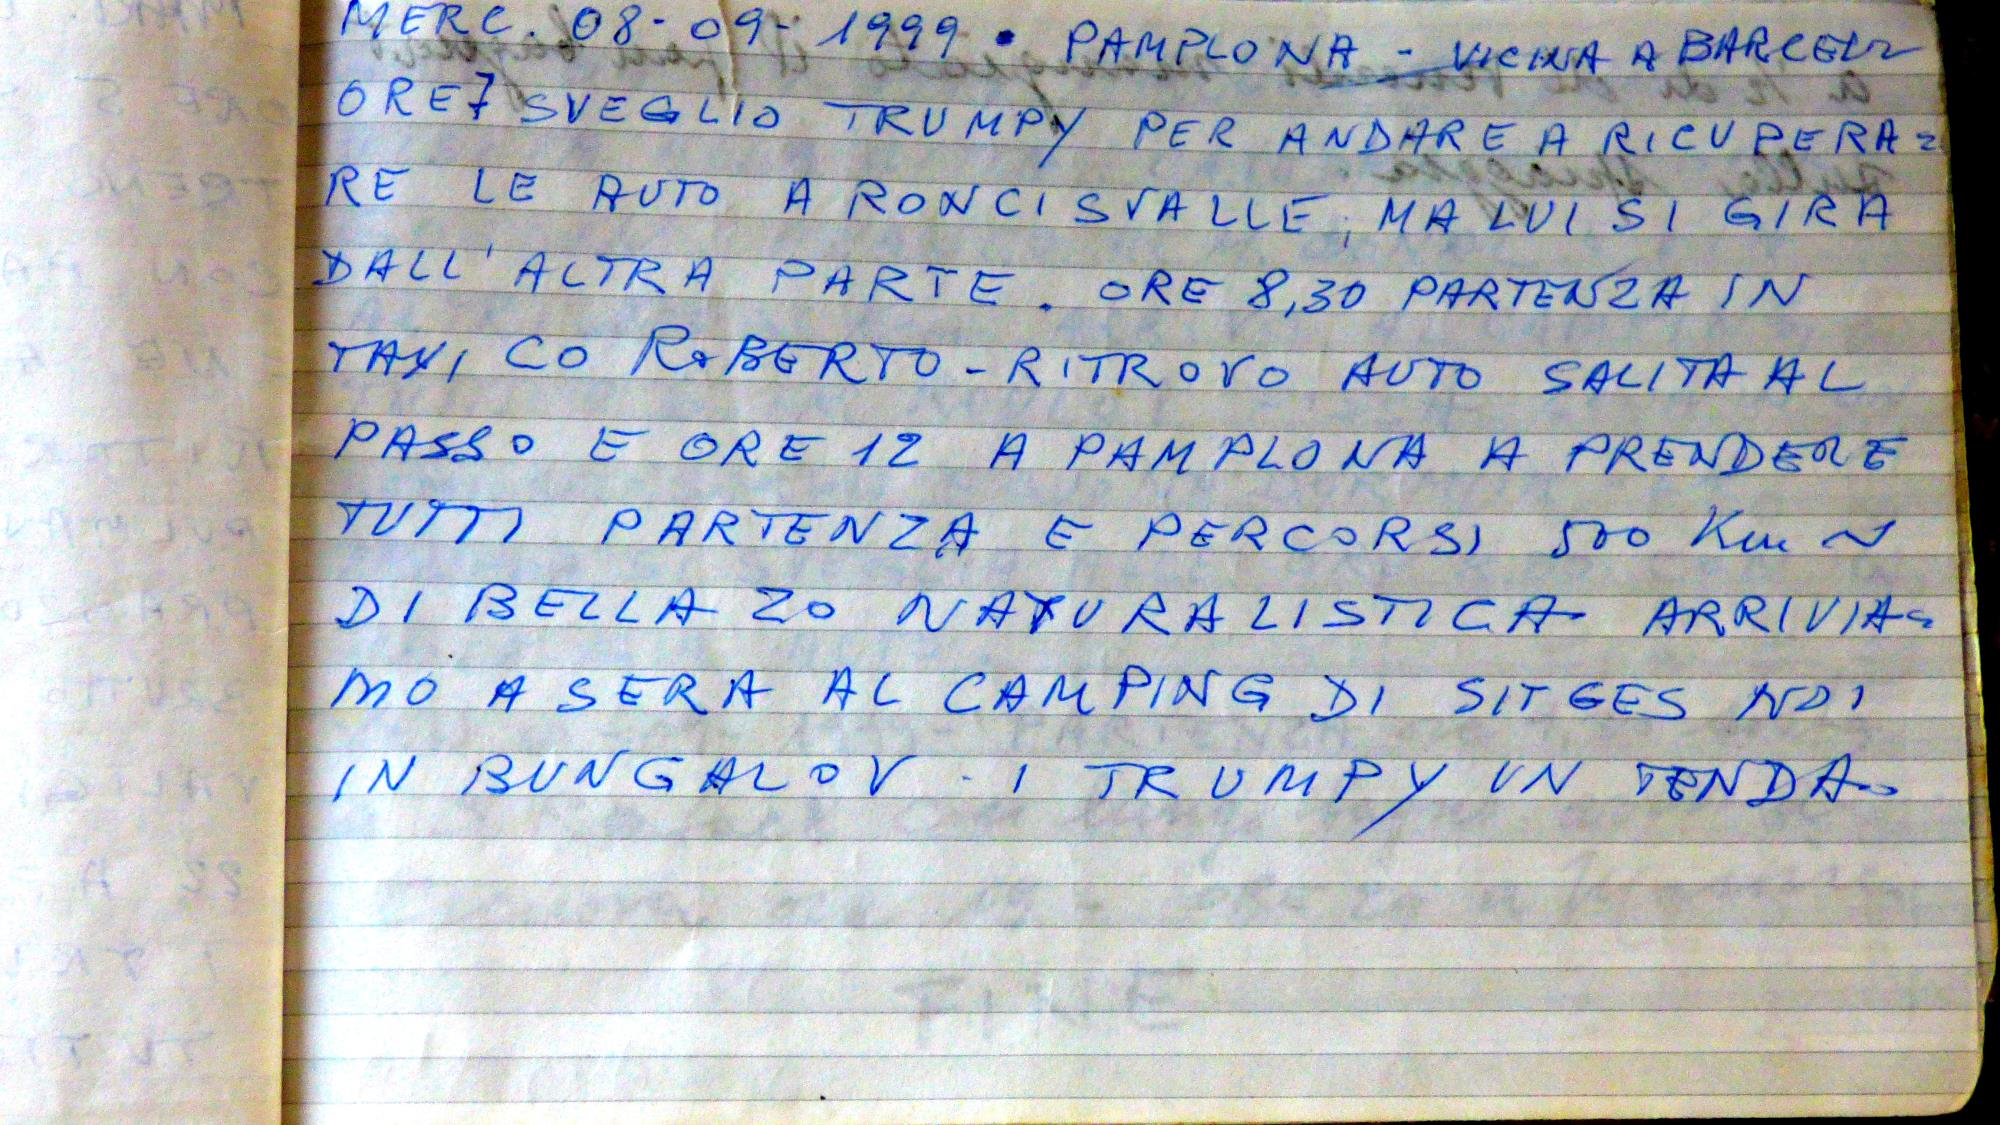 MERC. 08-09-1999 • PAMPLONA - VICINA A BARCELL
ORE 7 SVEGLIO TRUMPY PER ANDARE A RICUPERA=
RE LE AUTO A RONCISVALLE, MA LUI SI GIRA
DALL'ALTRA PARTE. ORE 8,30 PARTENZA IN
TAXI CO ROBERTO - RITROVO AUTO SALITA AL
PASSO E ORE 12 A PAMPLONA A PRENDERE
TUTTI PARTENZA E PERCORSI 500 Km ~
DI BELLA ZO NATURALISTICA ARRIVIA=
MO A SERA AL CAMPING DI SITGES NOI
IN BUNGALOV - I TRUMPY IN TENDA.